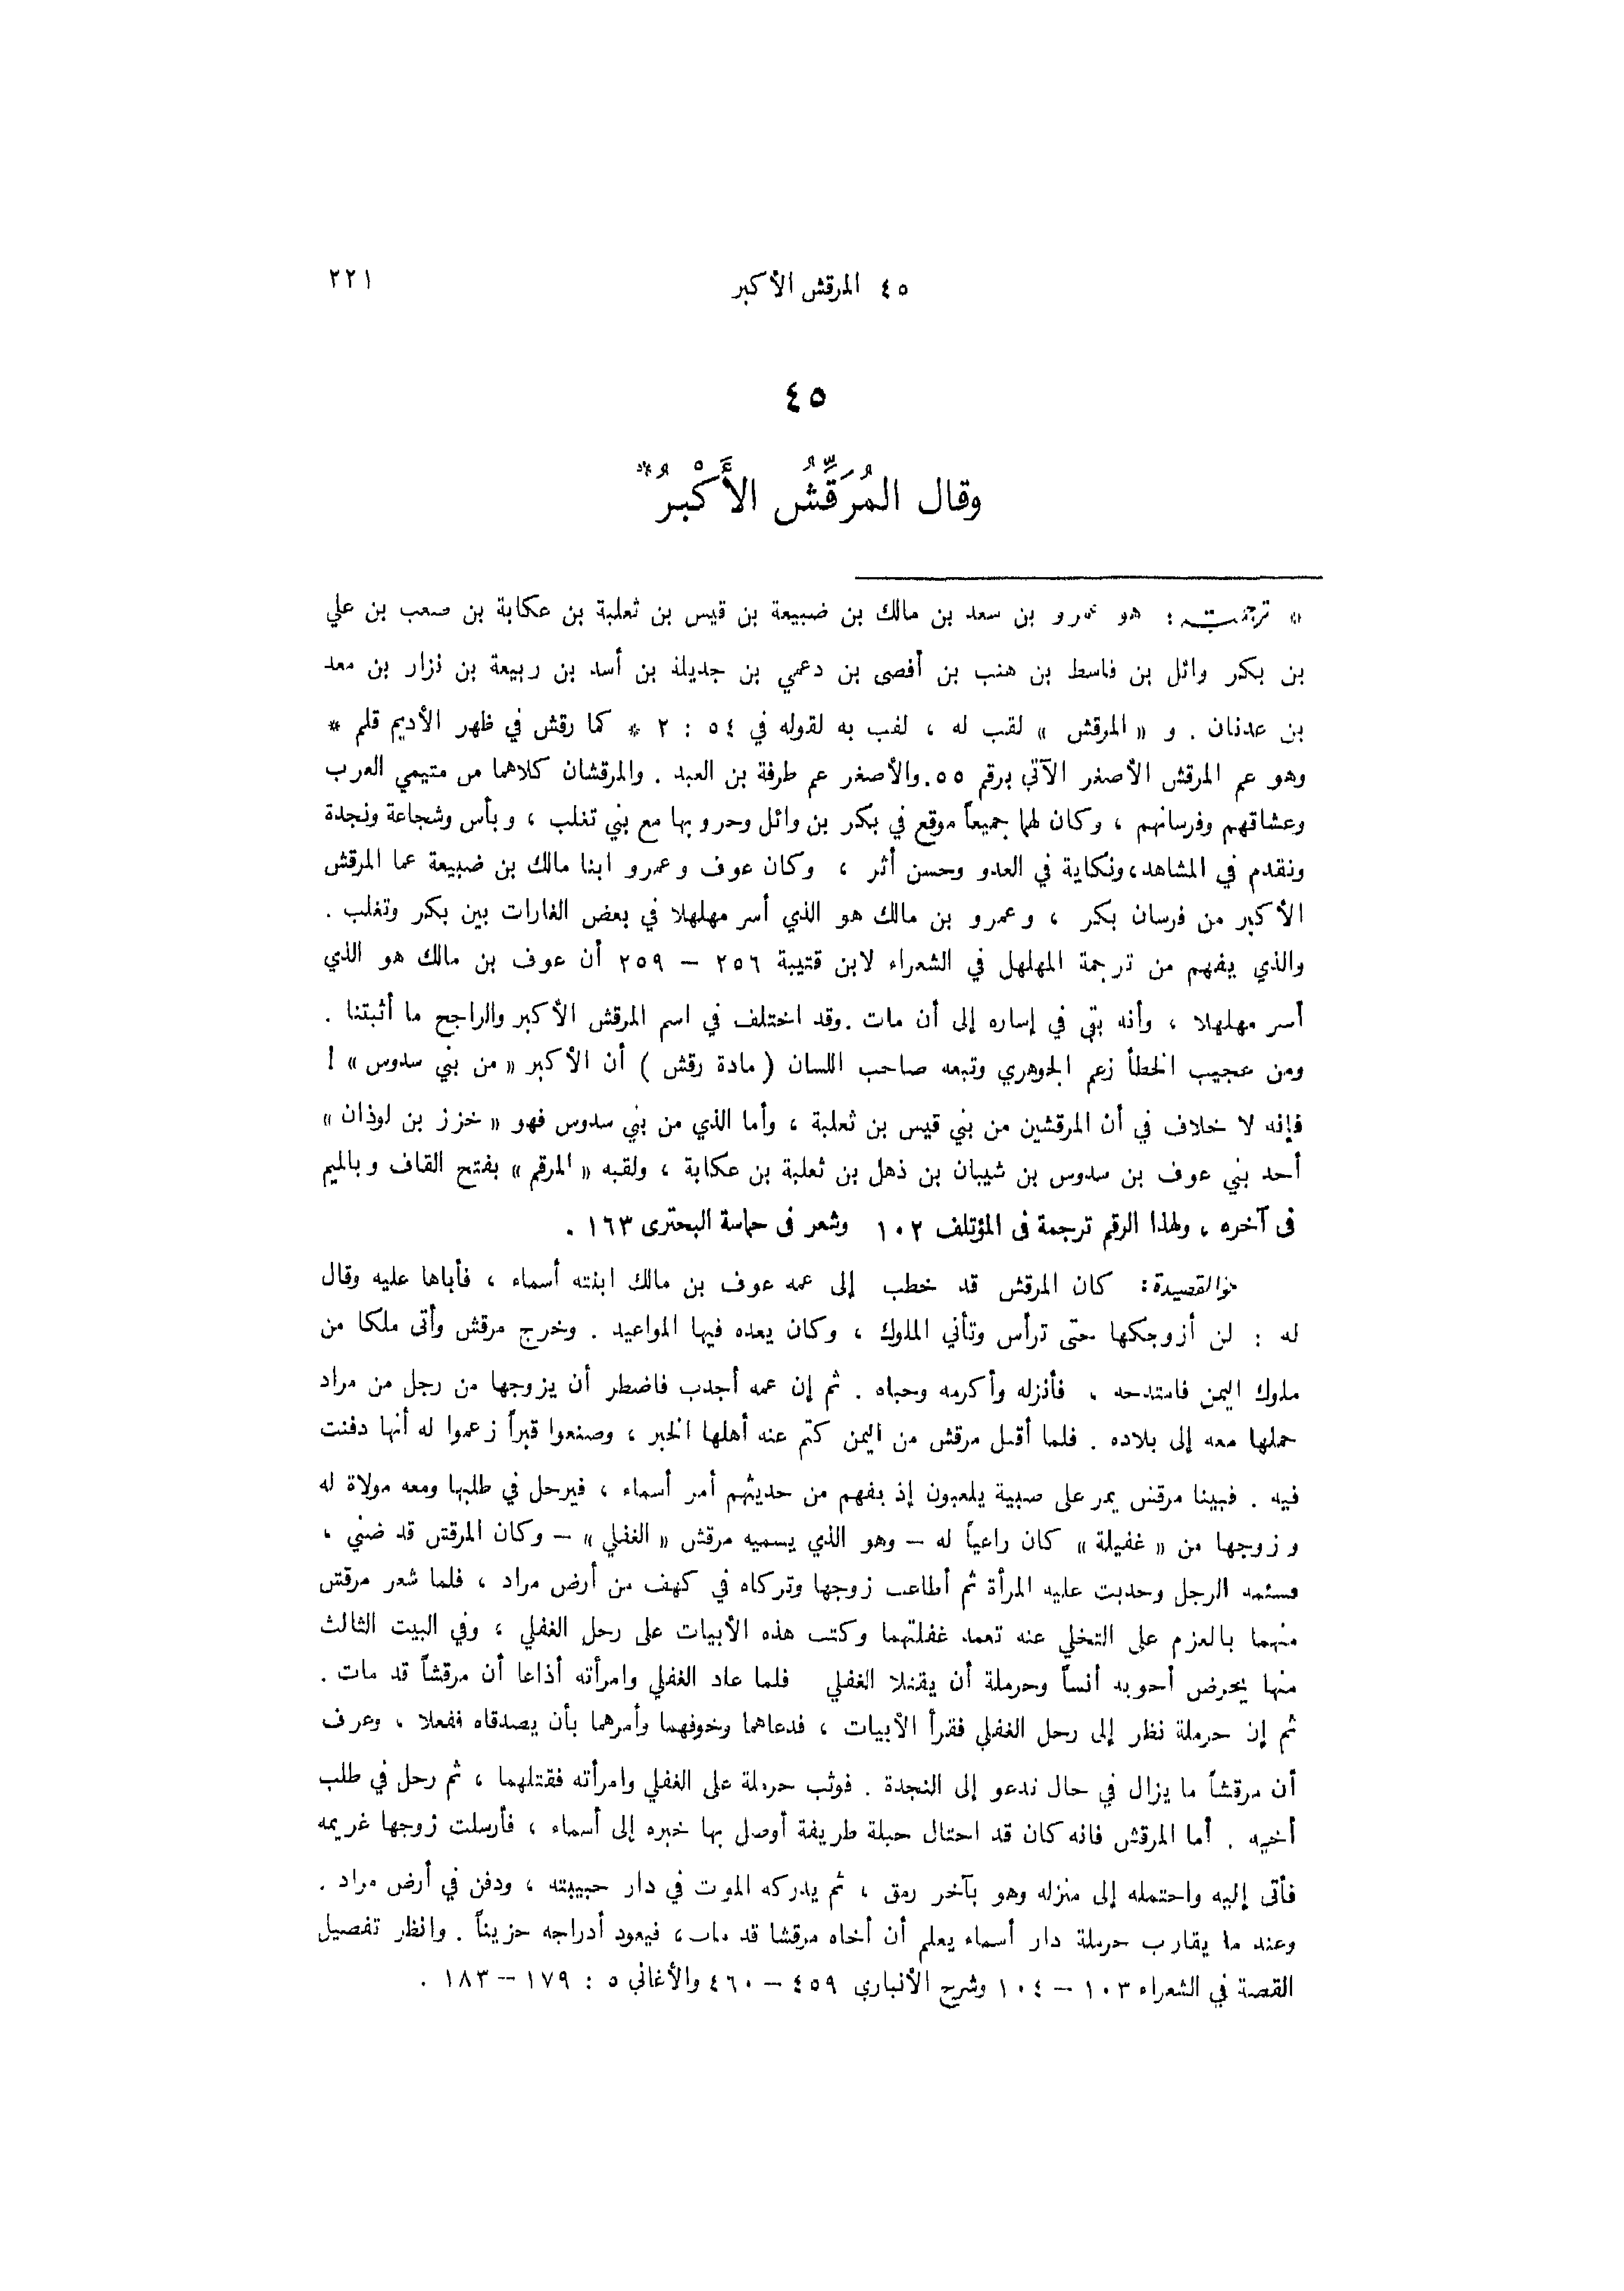 ٤٥ المرقش الأكبر
٢٢١
٤٥
وقال المُرَقِّشُ الأَكْبرُ*
* ترجمته : هو عمرو بن سعد بن مالك بن ضبيعة بن قيس بن ثعلبة بن عكابة بن صعب بن علي
بن بكر وائل بن قاسط بن هنب بن أفصى بن دعمي بن جديلة بن أسد بن ربيعة بن نزار بن معد
بن عدنان . و « المرقش » لقب له ، لقب به لقوله في ٥٤ : ٢ * كما رقش في ظهر الأديم قلم *
وهو عم المرقش الأصغر الآتي برقم ٥٥. والأصغر عم طرفة بن العبد . والمرقشان كلاهما من متيمي العرب
وعشاقهم وفرسانهم ، وكان لهما جميعاً موقع في بكر بن وائل وحروبها مع بني تغلب ، وبأس وشجاعة ونجدة
وتقدم في المشاهد، ونكاية في العدو وحسن أثر ، وكان عوف وعمرو ابنا مالك بن ضبيعة عما المرقش
الأكبر من فرسان بكر ، وعمرو بن مالك هو الذي أسر مهلهلا في بعض الغارات بين بكر وتغلب .
والذي يفهم من ترجمة المهلهل في الشعراء لابن قتيبة ٢٥٦ – ٢٥٩ أن عوف بن مالك هو الذي
أسر مهلهلا ، وأنه بقي في إساره إلى أن مات . وقد اختلف في اسم المرقش الأكبر والراجح ما أثبتنا .
ومن عجيب الخطأ زعم الجوهري وتبعه صاحب اللسان ( مادة رقش ) أن الأكبر « من بني سدوس » !
فإنه لا خلاف في أن المرقشين من بني قيس بن ثعلبة ، وأما الذي من بني سدوس فهو « خزز بن لوذان »
أحد بني عوف بن سدوس بن شيبان بن ذهل بن ثعلبة بن عكابة ، ولقبه « المرقم » بفتح القاف وبالميم
فى آخره ، ولهذا الرقم ترجمة فى المؤتلف ١٠٢ وشعر فى حماسة البحترى ١٦٣ .
جو القصيدة : كان المرقش قد خطب إلى عمه عوف بن مالك ابنته أسماء ، فأباها عليه وقال
له : لن أزوجكها حتى ترأس وتأتي الملوك ، وكان يعده فيها المواعيد . وخرج مرقش وأتى ملكا من
ملوك اليمن فامتدحه ، فأنزله وأكرمه وحباه . ثم إن عمه أجدب فاضطر أن يزوجها من رجل من مراد
حملها معه إلى بلاده . فلما أقبل مرقش من اليمن كتم عنه أهلها الخبر ، وصنعوا قبراً زعموا له أنها دفنت
فيه . فبينا مرقش يمر على صبية يلعبون إذ يفهم من حديثهم أمر أسماء ، فيرحل في طلبها ومعه مولاة له
وزوجها من « غفيلة » كان راعياً له – وهو الذي يسميه مرقش « الغفلي » – وكان المرقش قد ضني ،
فسئمه الرجل وحدبت عليه المرأة ثم أطاعت زوجها وتركاه في كهف من أرض مراد ، فلما شعر مرقش
منهما بالعزم على التخلي عنه تعمد غفلتهما وكتب هذه الأبيات على رحل الغفلي ، وفي البيت الثالث
منها يحرض أخويه أنساً وحرملة أن يقتلا الغفلي فلما عاد الغفلي وامرأته أذاعا أن مرقشاً قد مات .
ثم إن حرملة نظر إلى رحل الغفلي فقرأ الأبيات ، فدعاهما وخوفهما وأمرهما بأن يصدقاه ففعلا ، وعرف
أن مرقشاً ما يزال في حال تدعو إلى النجدة . فوثب حرملة على الغفلي وامرأته فقتلهما ، ثم رحل في طلب
أخيه . أما المرقش فانه كان قد احتال حيلة طريفة أوصل بها خبره إلى أسماء ، فأرسلت زوجها غريمه
فأتى إليه واحتمله إلى منزله وهو بآخر رمق ، ثم يدركه الموت في دار حبيبته ، ودفن في أرض مراد .
وعند ما يقارب حرملة دار أسماء يعلم أن أخاه مرقشا قد مات، فيعود أدراجه حزيناً . وانظر تفصيل
القصة في الشعراء ١٠٣ – ١٠٤ وشرح الأنباري ٤٥٩ – ٤٦٠ والأغاني ٥ : ١٧٩ – ١٨٣ .